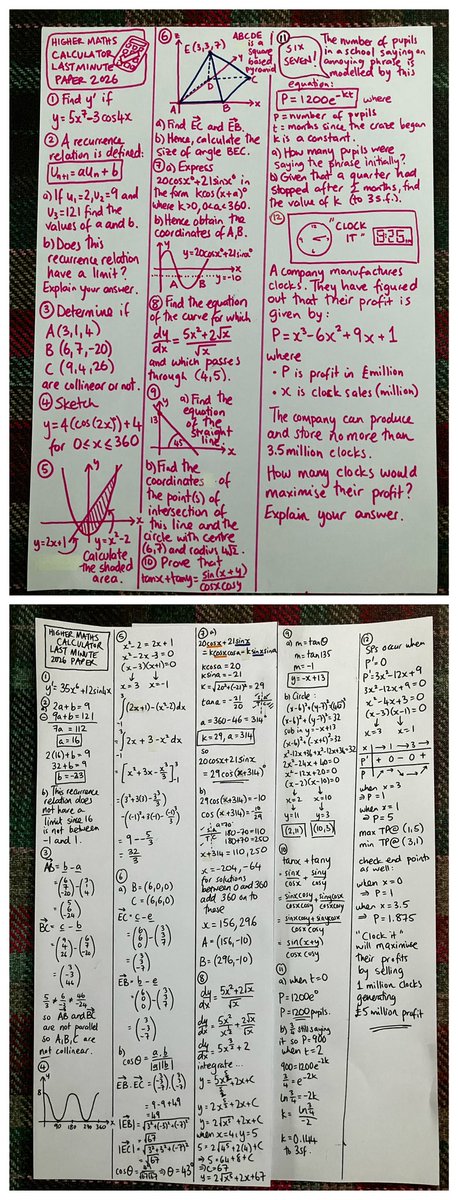 HIGHER MATHS
CALCULATOR
LAST MINUTE
PAPER 2026
① Find y' if
y=5x⁷-3cos4x
② A recurrence
relation is defined:
uₙ₊₁ = auₙ + b
a) If u₁=2, u₂=9 and
u₃=121 find the
values of a and b.
b) Does this
recurrence relation
have a limit?
Explain your answer.
③ Determine if
A (3,1,4)
B (6,7,-20)
C (9,4,26)
are collinear or not.
④ Sketch
y=4(cos(2x)°)+4
for 0≤x≤360
⑤
y
x
y=2x+1
y=x²-2
Calculate
the shaded
area.
⑥
E(3,3,7)
y
ABCDE
is a
square
based
pyramid
C
D
A
B
x
a) Find EC and EB.
b) Hence, calculate the
size of angle BEC.
⑦ a) Express
20cosx°+21sinx° in
the form kcos(x+a)°
where k>0, 0<a<360.
b) Hence obtain the
coordinates of A, B.
y
y=20cosx°+21sinx°
x
A
B
y=-10
⑧ Find the equation
of the curve for which
dy/dx = (5x²+2√x)/√x
and which passes
through (4,5).
⑨
a) Find the
equation
of the
straight
line.
13
45
b) Find the
coordinates of
the point(s) of
intersection of
this line and the
circle with centre
(6,7) and radius 4√2.
⑩ Prove that
tanx+tany = sin(x+y)/cosxcosy
⑪
SIX
SEVEN!
The number of pupils
in a school saying an
annoying phrase is
modelled by this
equation:
P=1200e⁻ᵏᵗ where
P= number of pupils
t = months since the craze began
k is a constant.
a) How many pupils were
saying the phrase initially?
b) Given that a quarter had
stopped after 2 months, find
the value of k (to 3s.f.).
⑫
"CLOCK
IT"
9:25am
A company manufactures
clocks. They have figured
out that their profit is
given by:
P=x³-6x²+9x+1
where
• P is profit in £million
• x is clock sales (million)
The company can produce
and store no more than
3.5million clocks.
How many clocks would
maximise their profit?
Explain your answer.
HIGHER MATHS
CALCULATOR
LAST MINUTE
2026 PAPER
①
y'=35x⁶+12sin4x
② 2a+b=9
⊖ 9a+b=121
7a=112
a=16
2(16)+b=9
32+b=9
b=-23
b) This recurrence
relation does
not have a
limit since 16
is not between
-1 and 1.
③
AB = b-a
= (6, 7, -20) - (3, 1, 4)
= (3, 6, -24)
BC = c-b
= (9, 4, 26) - (6, 7, -20)
= (3, -3, 46)
so AB and BC
are not parallel
so A,B,C are
not collinear.
④
8
90 180 270 360
⑤
x²-2=2x+1
x²-2x-3=0
(x-3)(x+1)=0
x=3 x=-1
∫₋₁³ (2x+1)-(x²-2)dx
∫₋₁³ 2x+3-x²dx
= [x²+3x-x³/3]₋₁³
= (3²+3(3)-3³/3)
-((-1)²+3(-1)-(-1)³/3)
= 9 - -5/3
= 32/3
⑥
a) B=(6,0,0)
C=(6,6,0)
EC = c-e
= (6, 6, 0) - (3, 3, 7)
= (3, 3, -7)
EB = b-e
= (6, 0, 0) - (3, 3, 7)
= (3, -3, -7)
b)
cosθ = a.b/|a||b|
EB.EC = (3, -3, -7).(3, 3, -7)
= 9-9+49
= 49
|EB| = √(3²+(-3)²+(-7)²)
= √67
|EC| = √(3²+3²+(-7)²)
= √67
cosθ = 49/√67√67 ⇒ θ=43°
⑦ a)
20cosx+21sinx
= kcosxcosa-ksinxsina
kcosa=20
ksina=-21
k=√(20²+(-21)²)=29
tana = -21/20
a=360-46=314°
k=29, a=314
so
20cosx+21sinx
= 29cos(x+314)°
b)
29cos(x+314)=-10
cos(x+314) = -10/29
180-70=110
180+70=250
x+314=110, 250
x=-204, -64
for solutions
between 0 and 360
add 360 on to
these
x=156, 296
A=(156,-10)
B=(296,-10)
⑧
dy/dx = (5x²+2√x)/√x
dy/dx = 5x²/√x + 2√x/√x
dy/dx = 5x^(3/2)+2
integrate...
y = 5x^(5/2)/(5/2) + 2x+C
y=2x^(5/2)+2x+C
y=2√x⁵+2x+C
when x=4, y=5
5=2√(4⁵)+2(4)+C
⇒ 5=64+8+C
⇒ C=-67
y=2√x⁵+2x-67
⑨
a) m=tanθ
m=tan135
m=-1
y=-x+13
b) Circle:
(x-6)²+(y-7)²=(4√2)²
(x-6)²+(y-7)²=32
sub in y=-x+13
(x-6)²+(-x+6)²=32
x²-12x+36+x²-12x+36=32
2x²-24x+40=0
x²-12x+20=0
(x-2)(x-10)=0
x=2 x=10
y=11 y=3
(2,11) (10,3)
⑩
tanx+tany
= sinx/cosx + siny/cosy
= sinxcosy/cosxcosy + sinycosx/cosxcosy
= (sinxcosy+sinycosx)/cosxcosy
= sin(x+y)/cosxcosy
⑪
a) when t=0
P=1200e⁰
P=1200 pupils.
b) 3/4 still saying
it so P=900
when t=2
900=1200e⁻²ᵏ
3/4 = e⁻²ᵏ
ln 3/4 = -2k
k = ln 3/4 / -2
k=0.144
to 3sf.
⑫
SPs occur when
P'=0
P'=3x²-12x+9
3x²-12x+9=0
x²-4x+3=0
(x-3)(x-1)=0
x=3 x=1
x → 1 → 3 →
P' + 0 - 0 +
when x=3
⇒ P=1
when x=1
⇒ P=5
max TP@ (1,5)
min TP@ (3,1)
check end points
as well:
when x=0
⇒ P=1
when x=3.5
⇒ P=1.875
"Clock it"
will maximise
their profits
by selling
1 million clocks
generating
£5 million profit